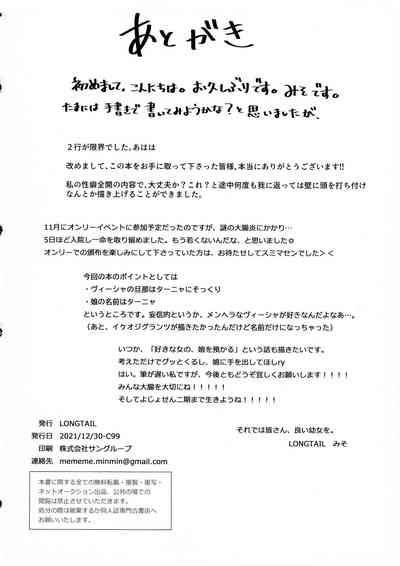 あとがき
初めまして、こんにちは。お久しぶりです。みそです。
たまには手書きで書いてみようかな？と思いましたが、
２行が限界でした。あはは
改めまして、この本をお手に取って下さった皆様、本当にありがとうございます!!
私の性癖全開の内容で、大丈夫か？これ？と途中何度も我に返っては壁に頭を打ち付け
なんとか描き上げることができました。
11月にオンリーイベントに参加予定だったのですが、謎の大腸炎にかかり…
5日ほど入院し一命を取り留めました。もう若くないんだな、と思いました。
オンリーでの頒布を楽しみにして下さっていた方は、お待たせしてスミマセンでした＞＜
今回の本のポイントとしては
・ヴィーシャの旦那はターニャにそっくり
・娘の名前はターニャ
というところです。妄信的というか、メンヘラなヴィーシャが好きなんだよなあ…。
（あと、イケオジグランツが描きたかったんだけど名前だけになっちゃった）
いつか、「好きな女の、娘を預かる」という話も描きたいです。
考えただけでグッとくるし、娘に手を出してほしry
はい。筆が遅い私ですが、今後ともどうぞ宜しくお願いします！！！！
みんな大腸を大切にね！！！！！
そしてよじょせん二期まで生きようね！！！！！
それでは皆さん、良い幼女を。
LONGTAIL　みそ
発行　LONGTAIL
発行日　2021/12/30-C99
印刷　株式会社サングループ
連絡先　mememe.minmin@gmail.com
本書に関する全ての無料転載・複製・複写・
ネットオークション出品、公共の場での
閲覧は禁止させていただきます。
処分の際は破棄するか同人誌専門古書店へ
お願いいたします。